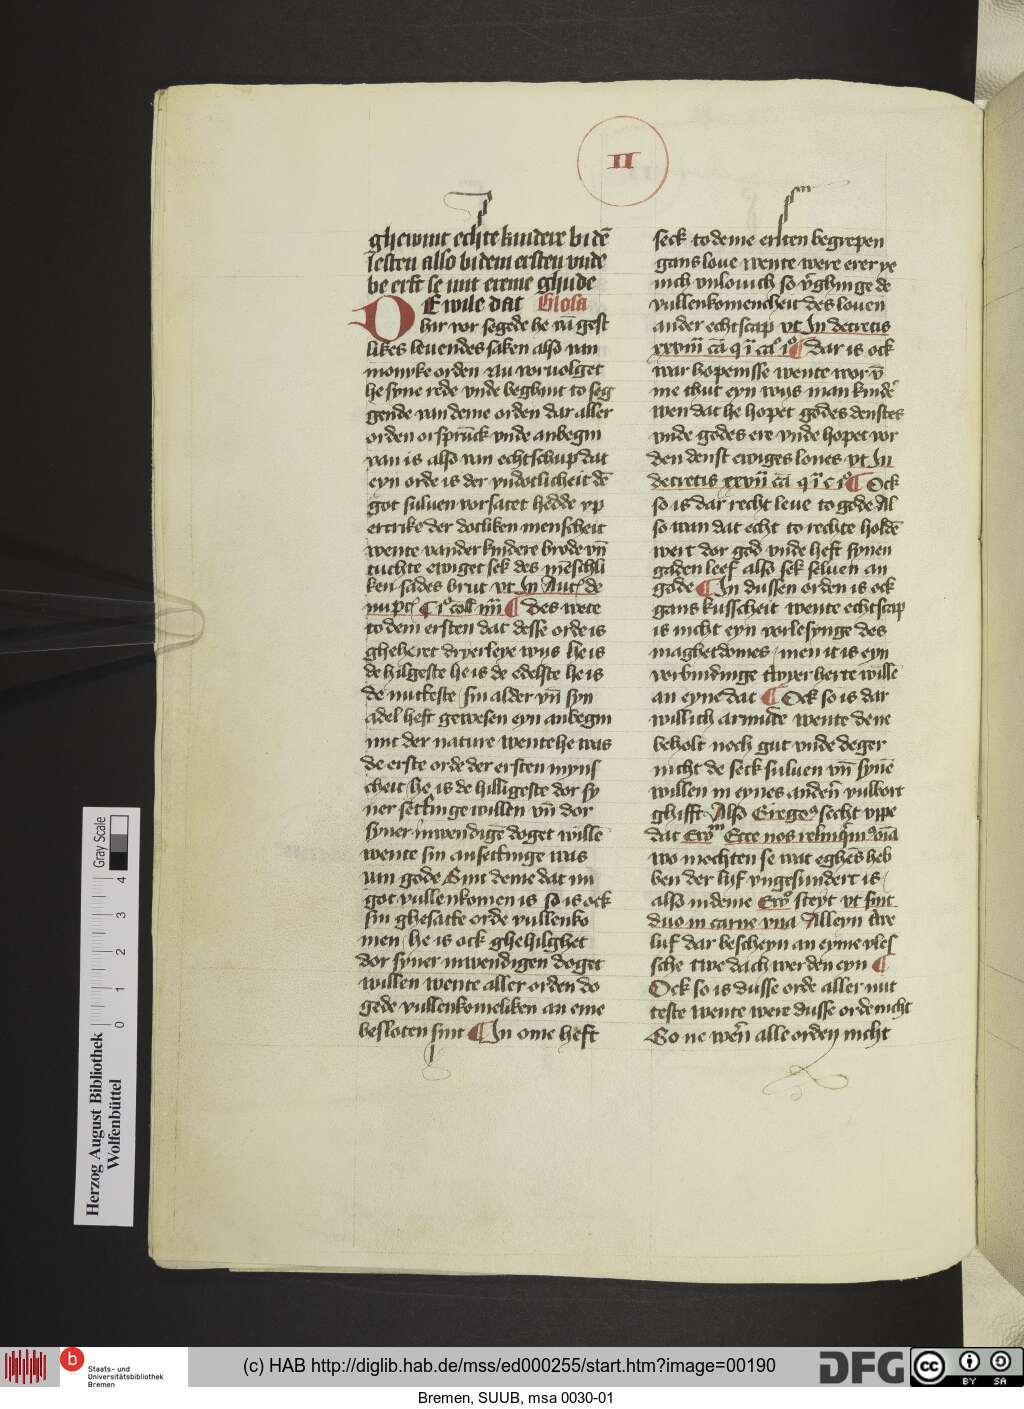 II
ghewint echte kindere bi dē
lesten also bi dem ersten vnde
be erft se mit ereme ghude
DE wile dat Glosa
hir vor segede he vā gest
likes leuendes saken also van
monnike orden Nu voruolget
he syne rede vnde beghint to seg
gende van deme orden dar aller
orden orsprūck vnde anbegin
van is also van echtschup dat
eyn orde is der vndotlicheit dē
got suluen vorsatet hedde vp
ertrike der dotliken menscheit
wente van der kindere brode vn̄
tuchte ewiget sek des mēschli
ken sades brut vt In Auten̄ de
nupc̄
des wete
to dem ersten dat desse orde is
gheheret dryerleye wys he is
de hilgeste he is de edelste he is
de nutkeste sin alder vn̄ syn
adel heft gewesen eyn anbegin
mit der nature wente he was
de erste orde der ersten mynſ
cheit he is de hilligeste dor sy
ner settinge willen vn̄ dor
syner inwendigē doget wille
wente sin ansettinge was
van gode Sint deme dat nu
got vullenkomen is so is ock
sin ghesatte orde vullenko
men he is ock ghehilghet
dor syner inwendigen doget
willen wente aller orden do
gede vullenkomeliken an eme
besloten sint ¶ In ome heft
seck to deme ersten begrepen
gans loue wente were erer ye
nich vnlouich so v̄ghinge de
vullenkomencheit des louen
ander echtscap vt In decretis
xxviii cā q ī cao io ¶ dar is ock
war hopenisse wente wor v̄
me thut eyn wys man kinder
wen dat he hopet godes denstes
vnde godes ere vnde hopet vor
den denst ewiges lones vt In
decretis xxvii cā q ī c io ¶ Ock
so is dar recht leue to gode Al
so wan dat echt to rechte holdē
wert dor god vnde heft synen
gaden leef also sek seluen an
gode ¶ In dussen orden is ock
gans kusscheit wente echtscap
is nicht eyn vorlesynge des
maghetdomes men it is eyn
vorbindinge twyer herte wille
an eyne dat ¶ Ock so is dar
willich armude wente dene
beholt noch gut vnde deger
nicht de seck suluen vn̄ synē
willen in eynes andern vulbort
ghifft Also Gregoꝰ secht vppe
dat Ewm Ecce nos relinqmꝰ oīa
wo mochten se wat eghēs heb
ben der lyf vngesundert is
also in deme Ewo steyt vt sint
duo in carne vna Alleyn twe
luf dar bescheyn an eyme vles
sche twe dach werden eyn ¶
Ock so is dusse orde aller nut
teste wente were dusse orde nicht
So ne wern̄ alle orden nicht
Gray Scale
0 1 2 3 4
Herzog August Bibliothek
Wolfenbüttel
b
Staats- und
Universitätsbibliothek
Bremen
(c) HAB http://diglib.hab.de/mss/ed000255/start.htm?image=00190
DFG
cc
BY SA
Bremen, SUUB, msa 0030-01